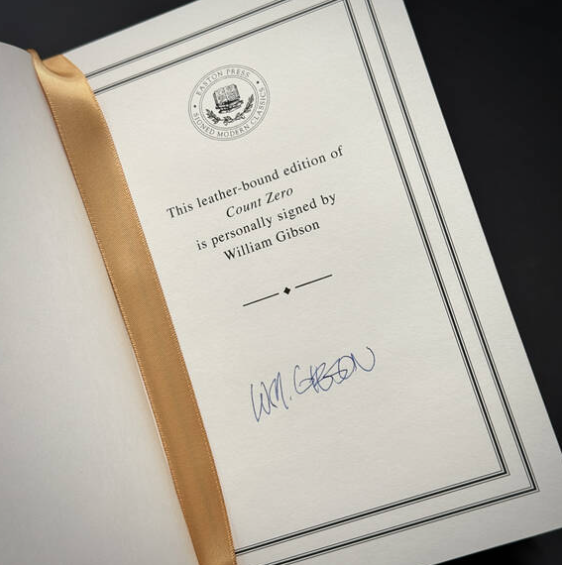 EASTON PRESS
SIGNED MODERN CLASSICS
This leather-bound edition of
Count Zero
is personally signed by
William Gibson
WM. GIBSON